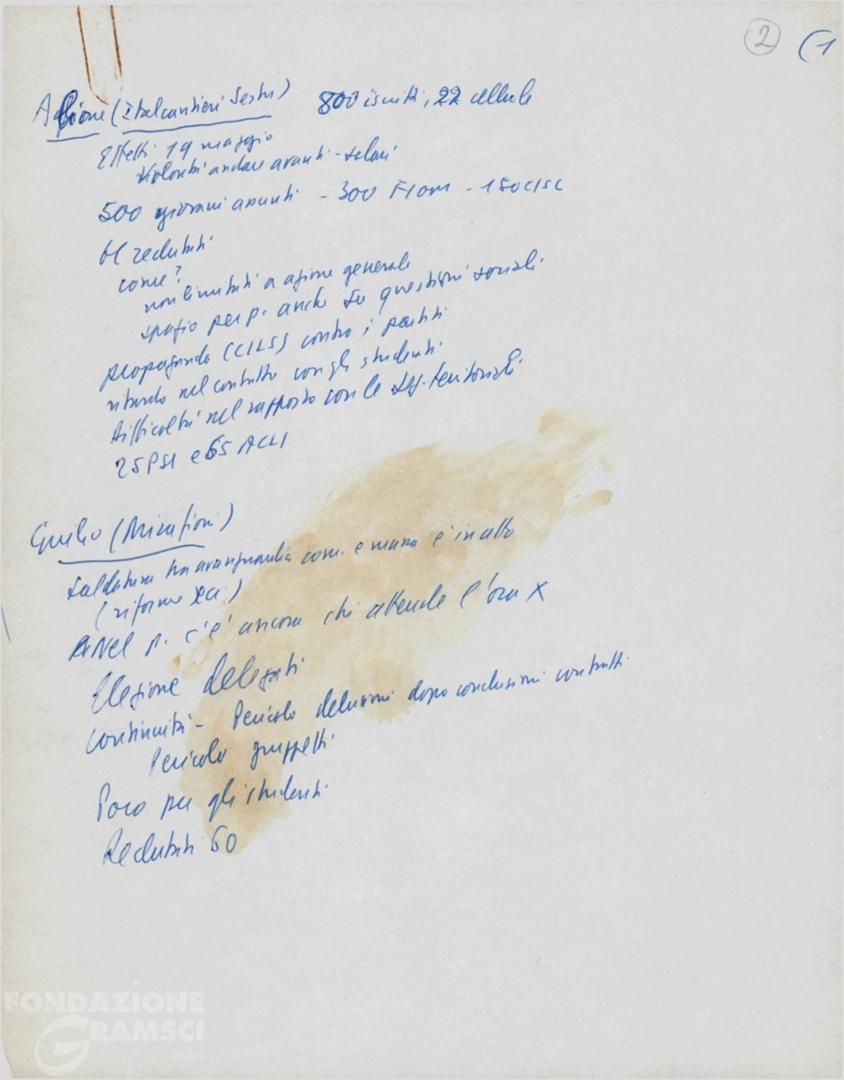 2 (1
(Italcantieri Sestri) 800 iscritti, 22 cellule
Effetti 19 maggio
andare avanti - salari
500 giovani avanti - 300 Fiom - 150 CISL
61 reclutati
come?
non limitati a azione generale
spazio per p. anche su questioni sociali
propaganda (CILS) contro i partiti
ritardo nel contatto con gli studenti
difficoltà nel rapporto con le sez. territoriali
25 PSI e 65 ACLI
Giulio (Mirafiori)
Saldatura tra avanguardia com. e massa è in atto
(riforme ecc.)
Nel p. c'è ancora chi attende l'ora X
Elezione delegati
Continuità - Pericolo delusioni dopo conclusioni contratti
Pericolo gruppetti
Poco per gli studenti
Reclutati 60
FONDAZIONE
GRAMSCI
onlus